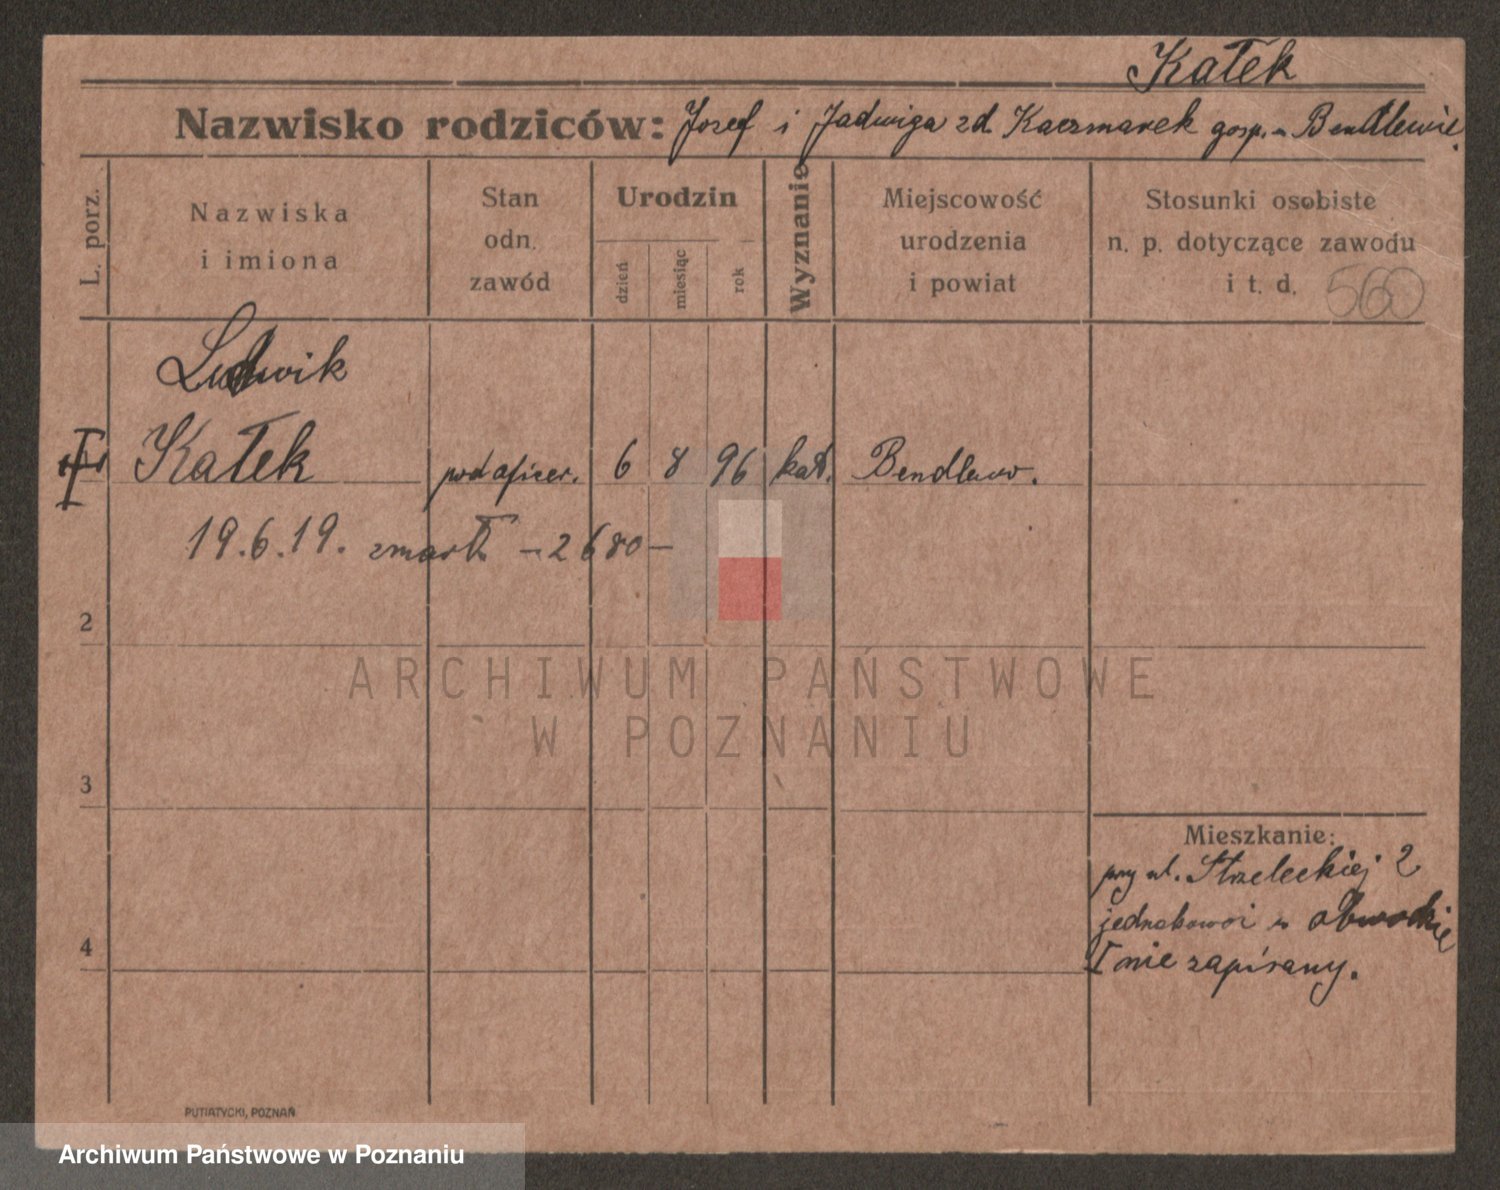 Kałek
Nazwisko rodziców: Josef i Jadwiga zd. Kaczmarek gosp. w Bendlewie.
L. porz.
Nazwiska
i imiona
Stan
odn.
zawód
Urodzin
dzień
miesiąc
rok
Wyznanie
Miejscowość
urodzenia
i powiat
Stosunki osobiste
n. p. dotyczące zawodu
i t. d.
560
Ludwik
Kałek podoficer. 6 8 96 kat. Bendlewo.
19.6.19. zmarł - 2680 -
2
3
4
Mieszkanie:
przy ul. Strzeleckiej 2
jednakowoż w
I nie zapisany.
PUTIATYCKI, POZNAŃ
ARCHIWUM PAŃSTWOWE
W POZNANIU
Archiwum Państwowe w Poznaniu